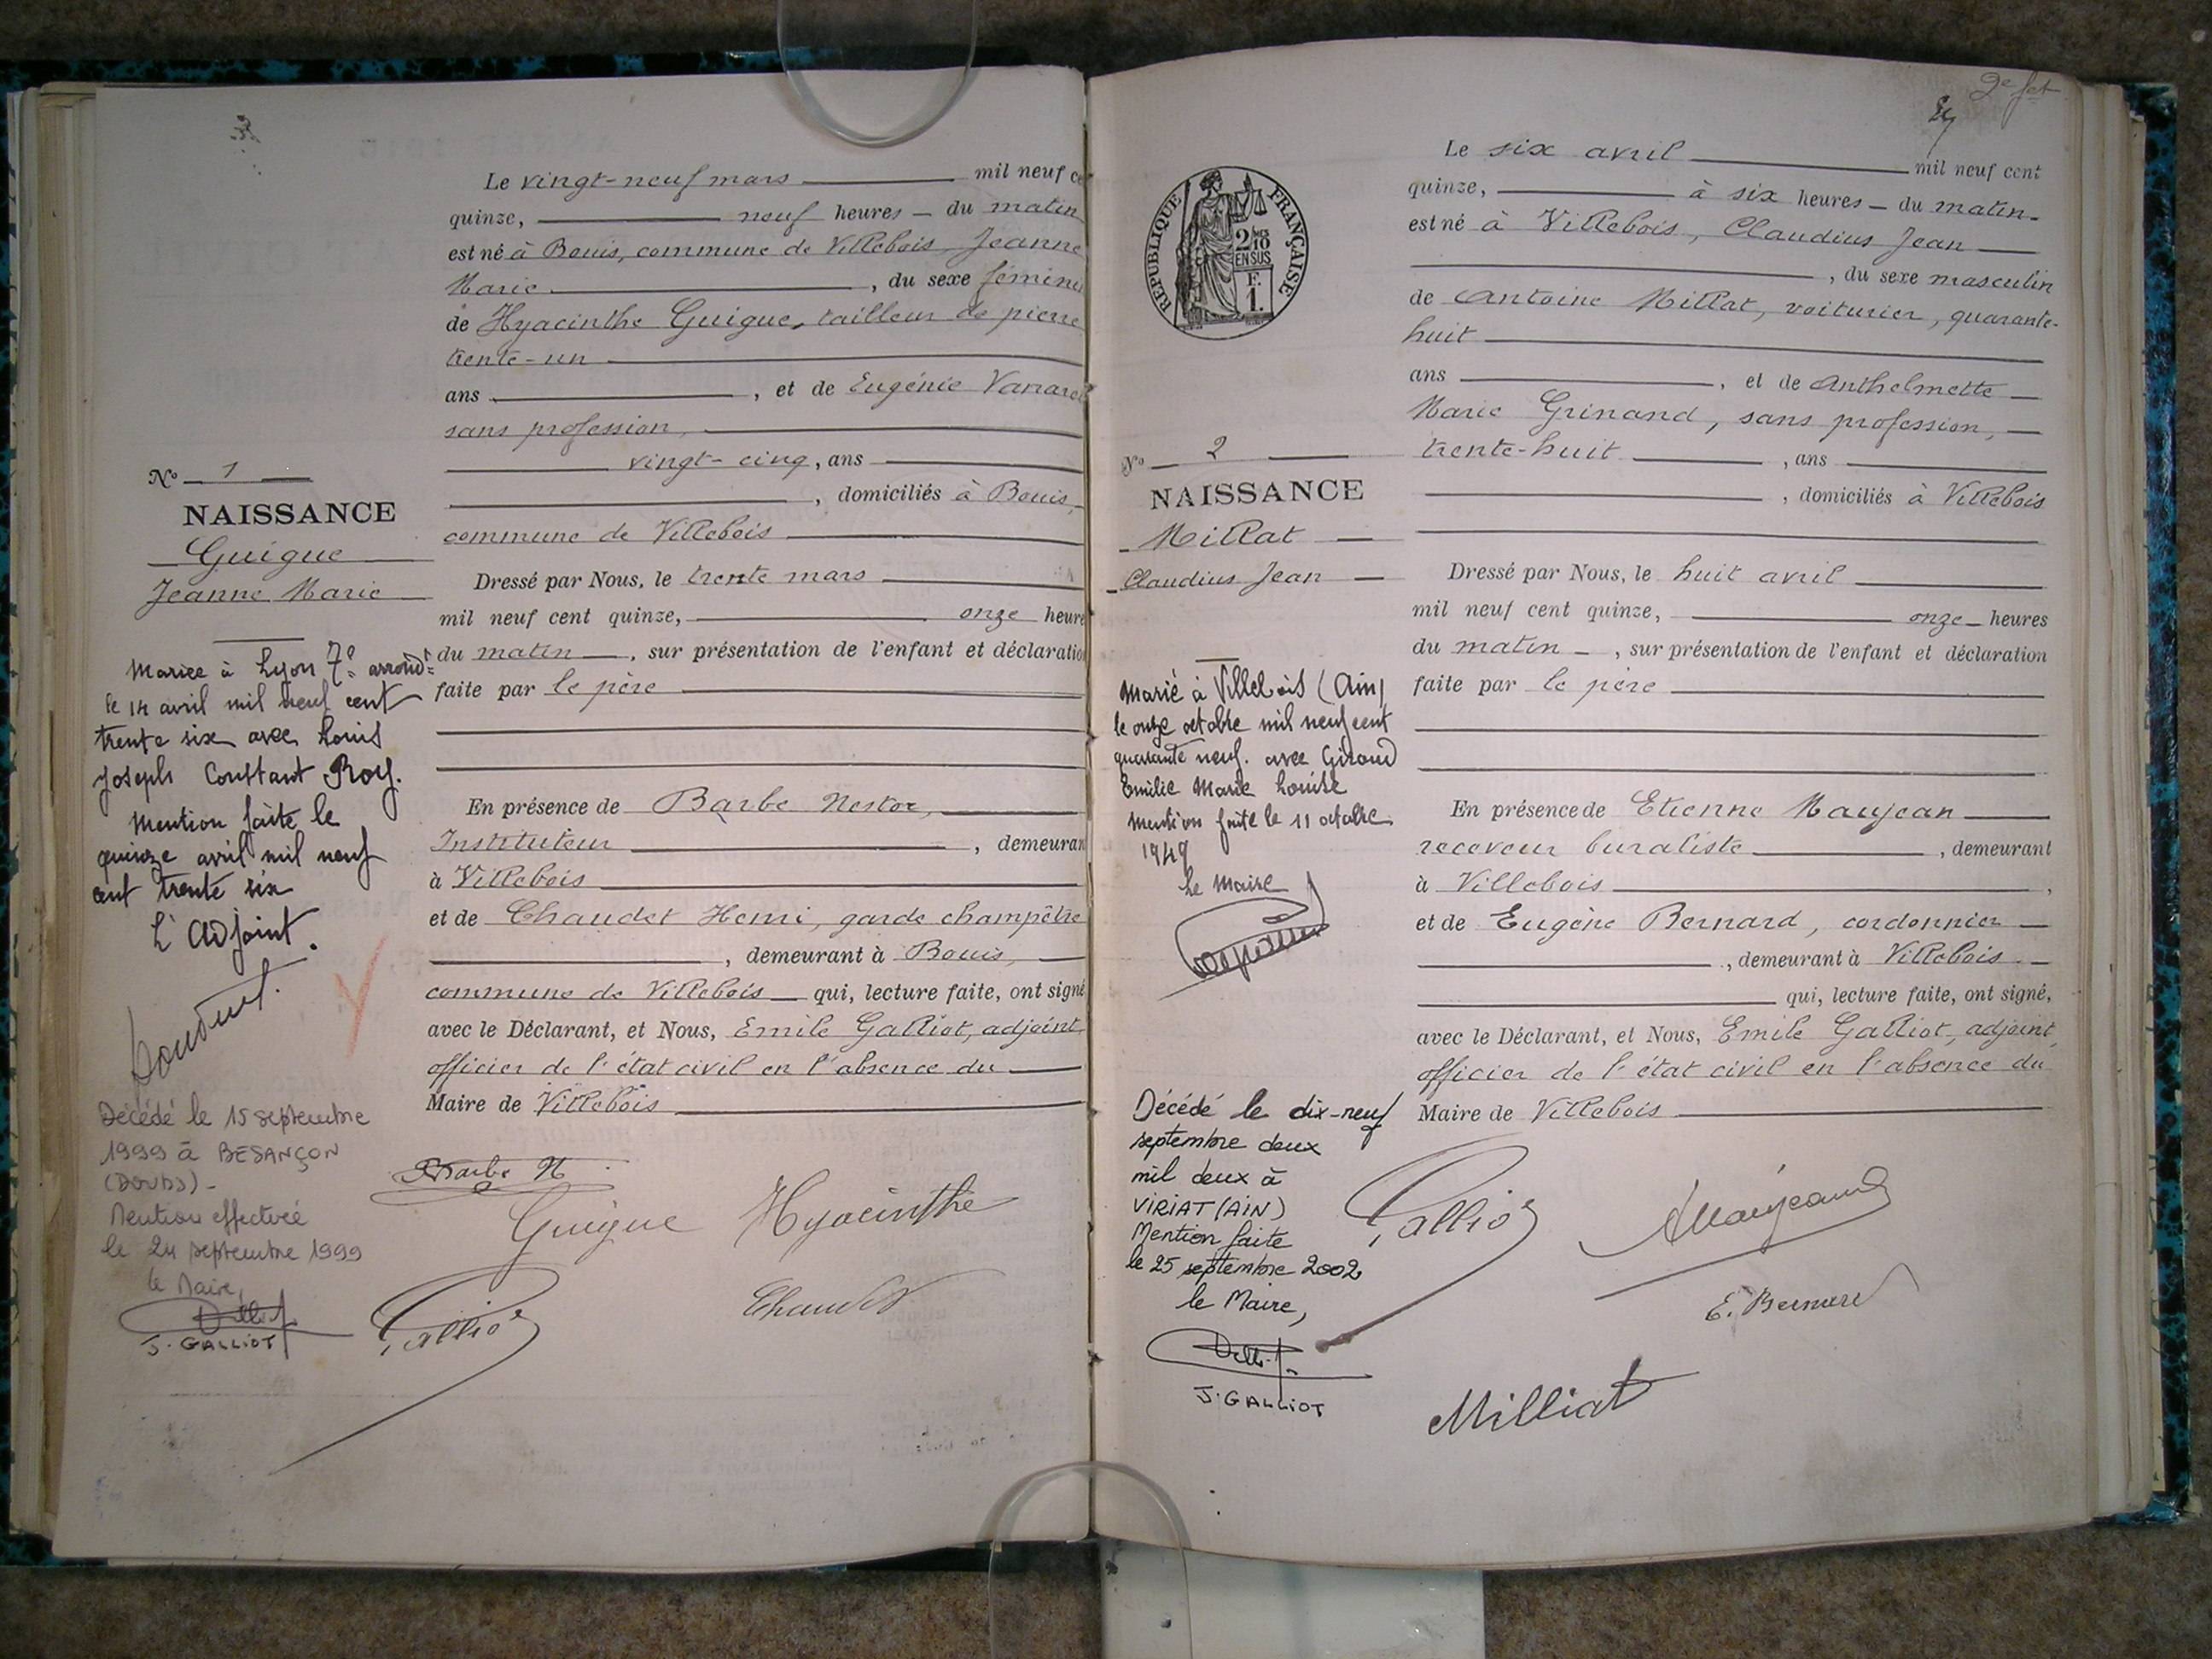 Le vingt-neuf mars mil neuf ce
quinze, neuf heures du matin
est né à Bouis, commune de Villebois, Jeanne
Marie, du sexe féminin
de Hyacinthe Guigue, tailleur de pierre
trente-un
ans, et de Eugénie
sans profession,
vingt-cinq, ans
, domiciliés à Bouis,
commune de Villebois
N° 1
NAISSANCE
Guigue
Jeanne Marie
Dressé par Nous, le trente mars
mil neuf cent quinze, onze heure
du matin, sur présentation de l'enfant et déclaratio
faite par le père
En présence de Barbe Nestor,
Instituteur, demeuran
à Villebois
et de Chaudet Henri, garde champêtre
, demeurant à Bouis,
commune de Villebois qui, lecture faite, ont signé
avec le Déclarant, et Nous, Emile Galliot, adjoint
officier de l'état civil en l'absence du
Maire de Villebois
Mariée à Lyon 7e arrondt
le 14 avril mil neuf cent
trente six avec Louis
Joseph Constant Roy.
Mention faite le
quinze avril mil neuf
cent trente six
L'Adjoint.
Décédé le 15 septembre
1999 à BESANÇON
(DOUBS) -
Mention effectuée
le 24 septembre 1999
le Maire,
J. GALLIOT
Barbe N
Guigue Hyacinthe
Galliot
Chaudet
2e fet
REPUBLIQUE FRANÇAISE
2/10
EN SUS
F.
1.
Le six avril mil neuf cent
quinze, à six heures du matin
est né à Villebois, Claudius Jean
, du sexe masculin
de Antoine Milliat, voiturier, quarante-
huit
ans, et de Anthelmette
Marie Grinand, sans profession,
trente-huit, ans
, domiciliés à Villebois
N° 2
NAISSANCE
Milliat
Claudius Jean
Dressé par Nous, le huit avril
mil neuf cent quinze, onze heures
du matin, sur présentation de l'enfant et déclaration
faite par le père
En présence de Etienne Maujean
receveur buraliste, demeurant
à Villebois,
et de Eugène Bernard, cordonnier
, demeurant à Villebois
qui, lecture faite, ont signé,
avec le Déclarant, et Nous, Emile Galliot, adjoint,
officier de l'état civil en l'absence du
Maire de Villebois
Marié à Villebois (Ain)
le onze octobre mil neuf cent
quarante neuf. avec Giroud
Emilie Marie Louise
Mention faite le 11 octobre
1949
Le Maire
Décédé le dix-neuf
septembre deux
mil deux à
VIRIAT (AIN)
Mention faite
le 25 septembre 2002
le Maire,
J. GALLIOT
Galliot
Maujean
E. Bernard
Milliat